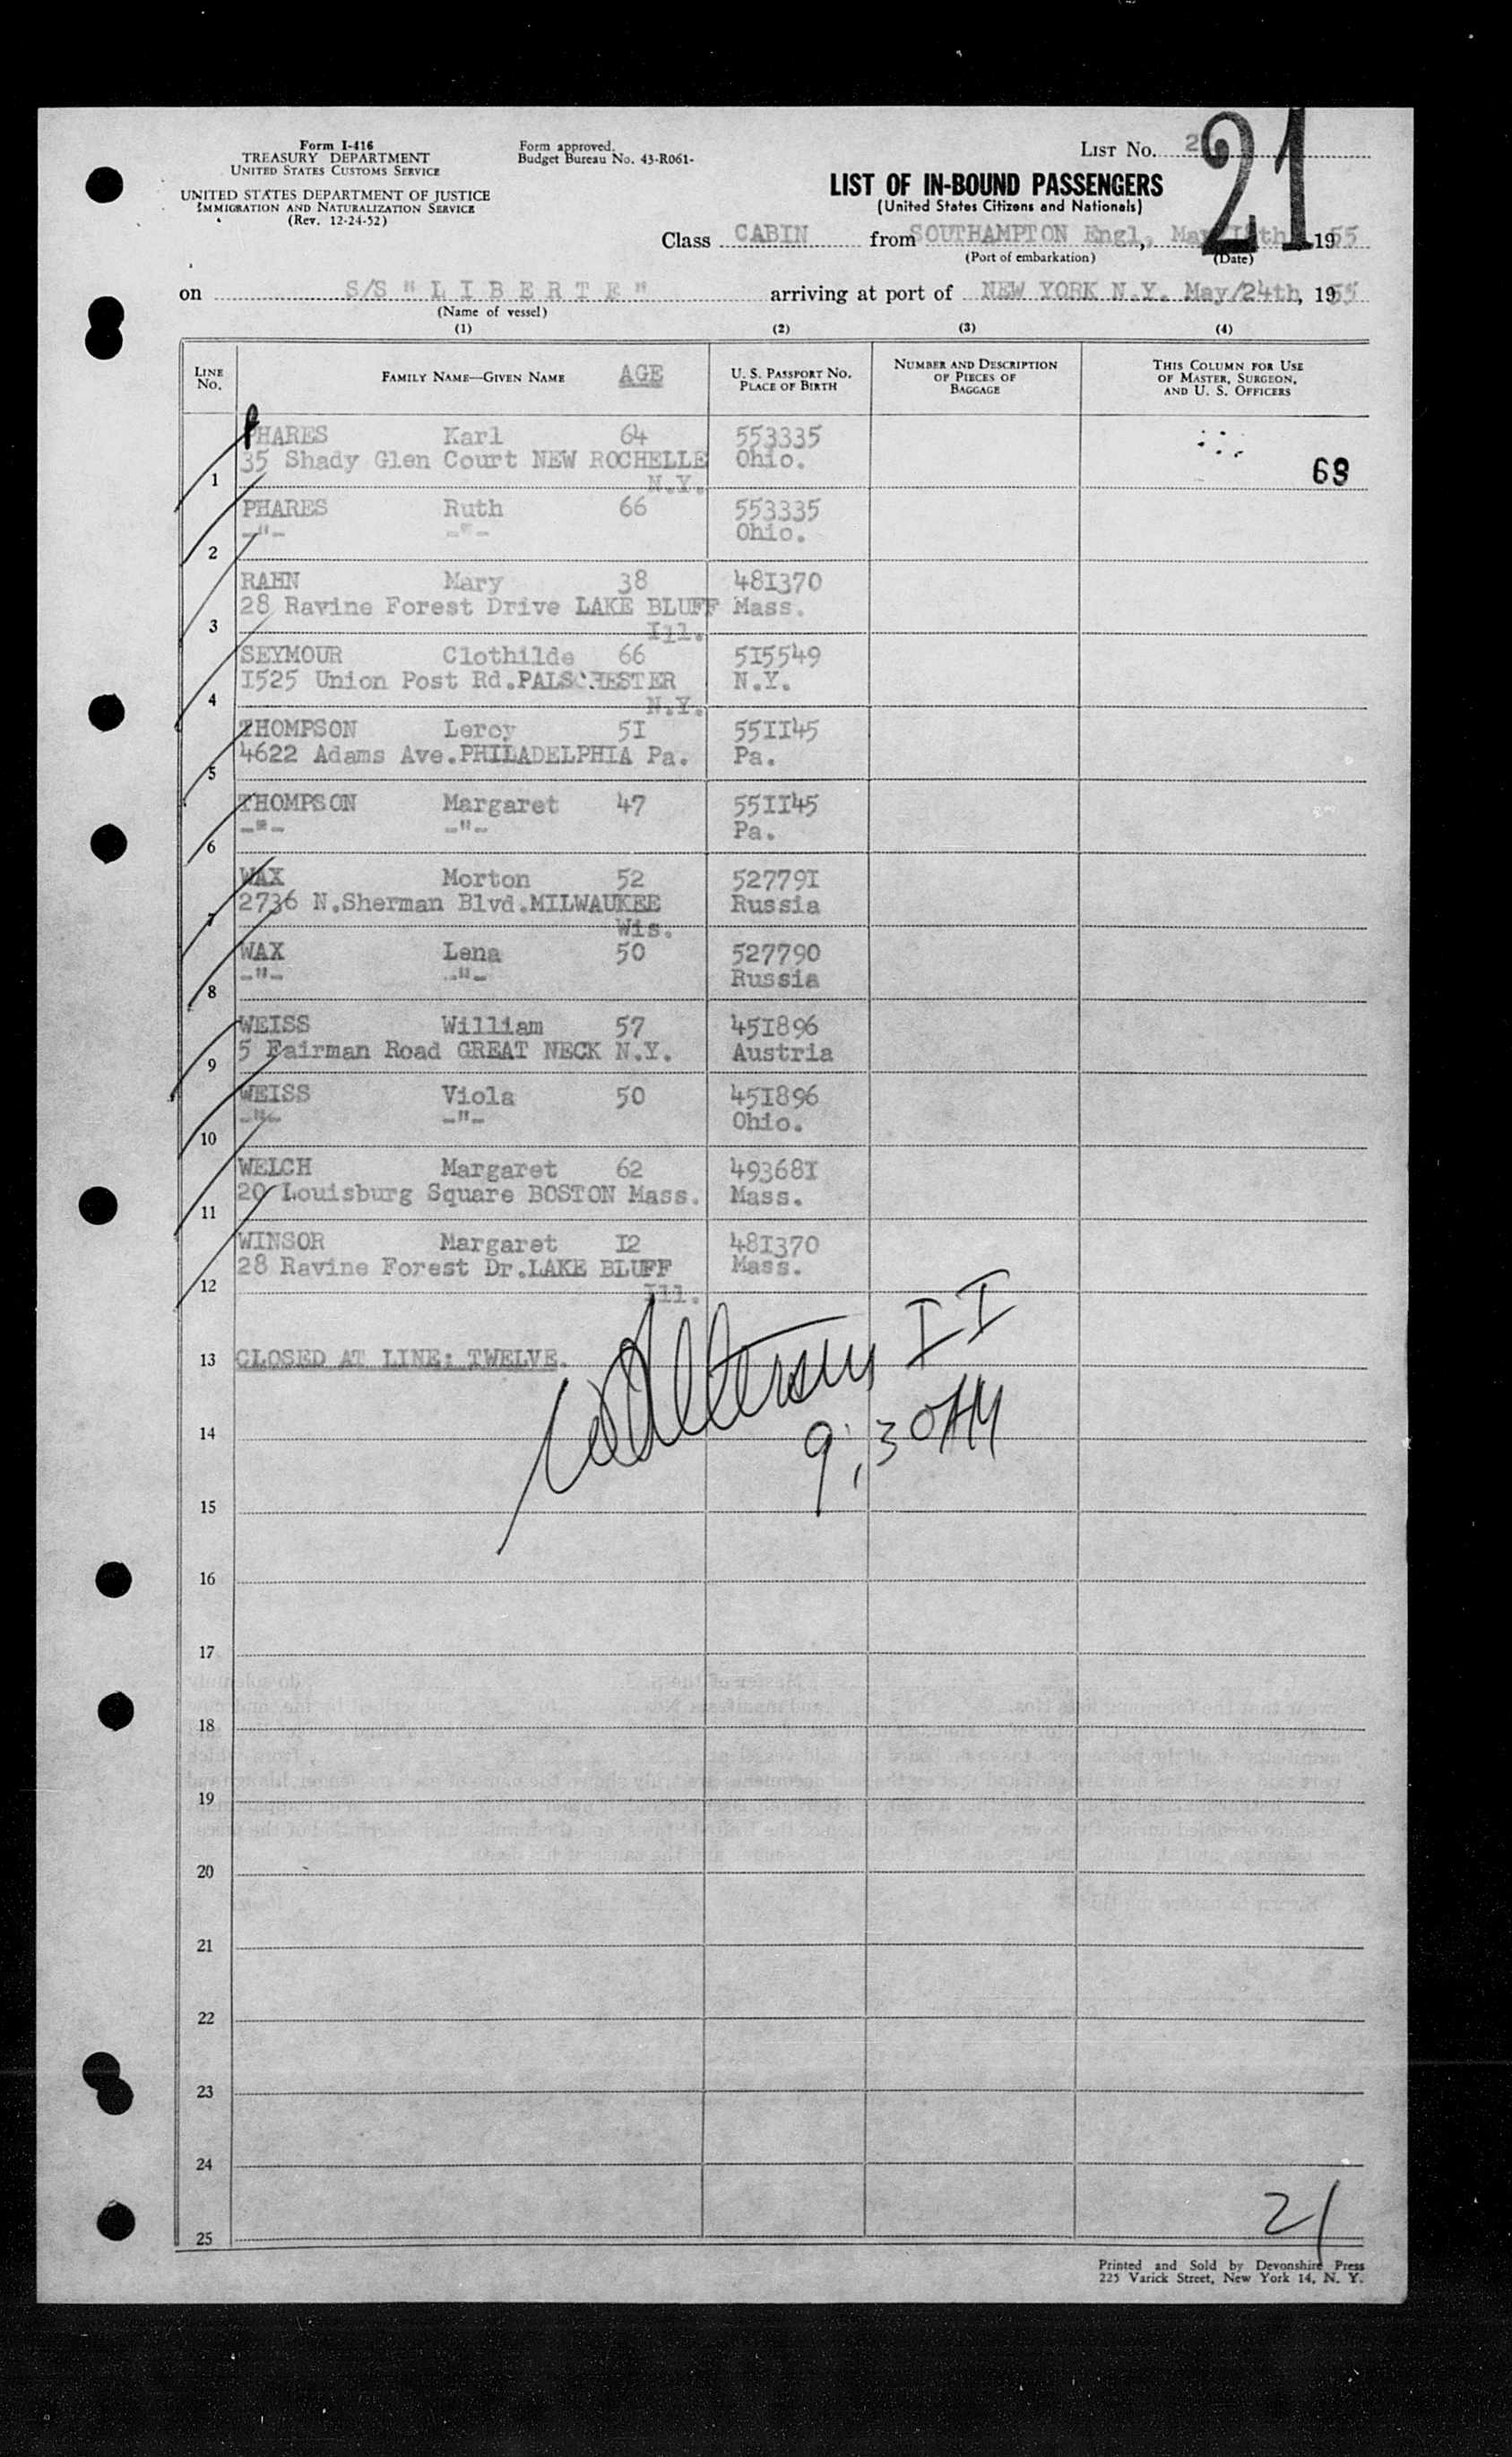 Form I-416
TREASURY DEPARTMENT
UNITED STATES CUSTOMS SERVICE
UNITED STATES DEPARTMENT OF JUSTICE
IMMIGRATION AND NATURALIZATION SERVICE
(Rev. 12-24-52)
Form approved.
Budget Bureau No. 43-R061-
LIST NO. 21
LIST OF IN-BOUND PASSENGERS
(United States Citizens and Nationals)
Class CABIN from SOUTHAMPTON Engl, May, 1955
(Port of embarkation) (Date)
on S/S " L I B E R T E " arriving at port of NEW YORK N.Y. May/24th, 1955
(Name of vessel)
(1) (2) (3) (4)
LINE NO. FAMILY NAME—GIVEN NAME AGE U. S. PASSPORT NO. PLACE OF BIRTH NUMBER AND DESCRIPTION OF PIECES OF BAGGAGE THIS COLUMN FOR USE OF MASTER, SURGEON, AND U. S. OFFICERS
PHARES Karl 64 553335
35 Shady Glen Court NEW ROCHELLE Ohio.
1 N.Y.
PHARES Ruth 66 553335
-"- -"- Ohio.
2
RAHN Mary 38 481370
28 Ravine Forest Drive LAKE BLUFF Mass.
3 Ill.
SEYMOUR Clothilde 66 515549
1525 Union Post Rd. N.Y.
4 N.Y.
THOMPSON Leroy 5I 55II45
4622 Adams Ave.PHILADELPHIA Pa. Pa.
5
THOMPSON Margaret 47 55II45
-"- -"- Pa.
6
WAX Morton 52 52779I
2736 N.Sherman Blvd.MILWAUKEE Russia
7 Wis.
WAX Lena 50 527790
-"- -"- Russia
8
WEISS William 57 45I896
5 Fairman Road GREAT NECK N.Y. Austria
9
WEISS Viola 50 45I896
-"- -"- Ohio.
10
WELCH Margaret 62 49368I
20 Louisburg Square BOSTON Mass. Mass.
11
WINSOR Margaret I2 48I370
28 Ravine Forest Dr.LAKE BLUFF Mass.
12 Ill.
13 CLOSED AT LINE: TWELVE.
II
9:30AM
14
15
16
17
18
19
20
21
22
23
24
21
25
Printed and Sold by Devonshire Press
225 Varick Street, New York 14, N. Y.